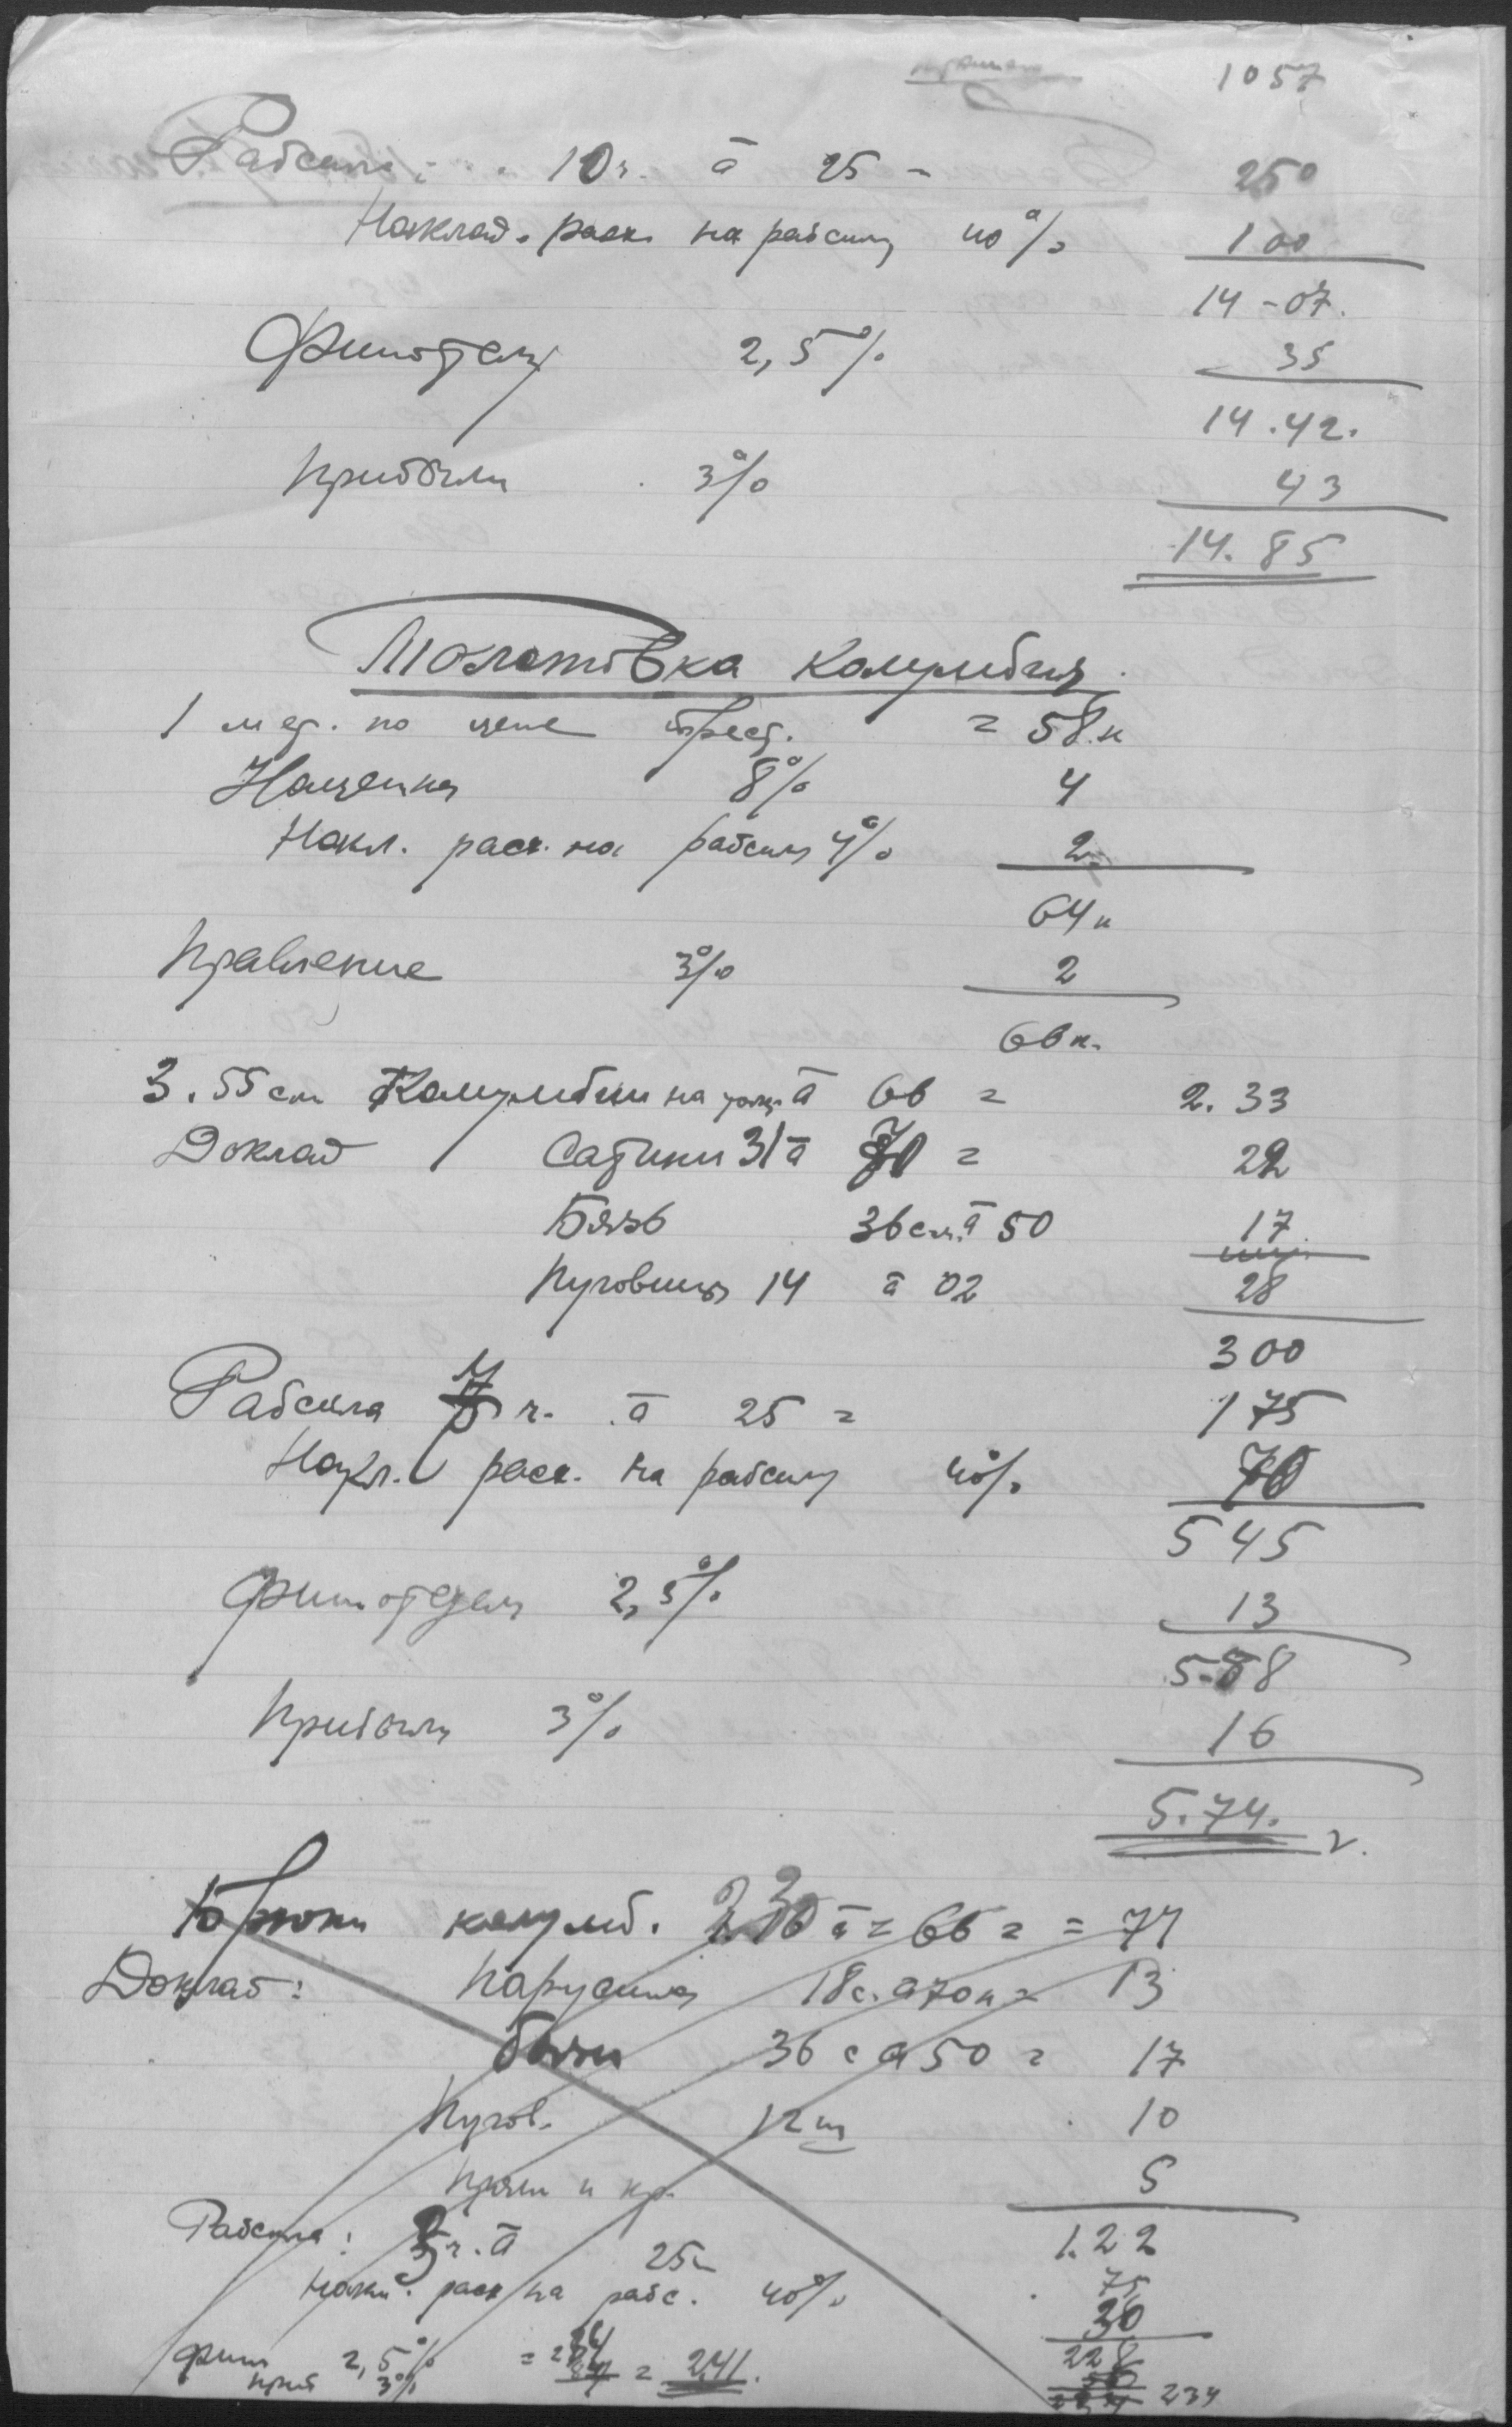 1057
Рабсила: 10 ч. ā 25 - 250
Наклад. расх. на рабсилу 40% 100
14-07.
Финотдел 2,5% 35
14.42.
Прибыли 3% 43
14.85
Толстовка Колумбия.
1 мет. по цене трест. = 58 к
Наценка 8% 4
Накл. расх. на рабсилу 4% 2
64 к
Правление 3% 2
66 к.
3.55 см Колумбии на ā 66 = 2.33
Доклад Сатини 31 ā 70 = 22
Бязь 36 см. ā 50 17
Пуговицы 14 ā 02 28
300
Рабсила 7 ч. ā 25 = 175
Накл. расх. на рабсилу 40% 70
545
Финотдел 2,5% 13
5.58
Прибыли 3% 16
5.74.
Брюки колумб. ā = 66 =
Доклад: Парусина 18 с. ā 70 к = 13
бязи 36 с ā 50 = 17
Пугов. 12 ш 10
5
1.22
Рабсила: ч. ā 25 75
Накл. расх на рабс. 40% 30
Фин 2,5% 228
приб 3% = 241. 234